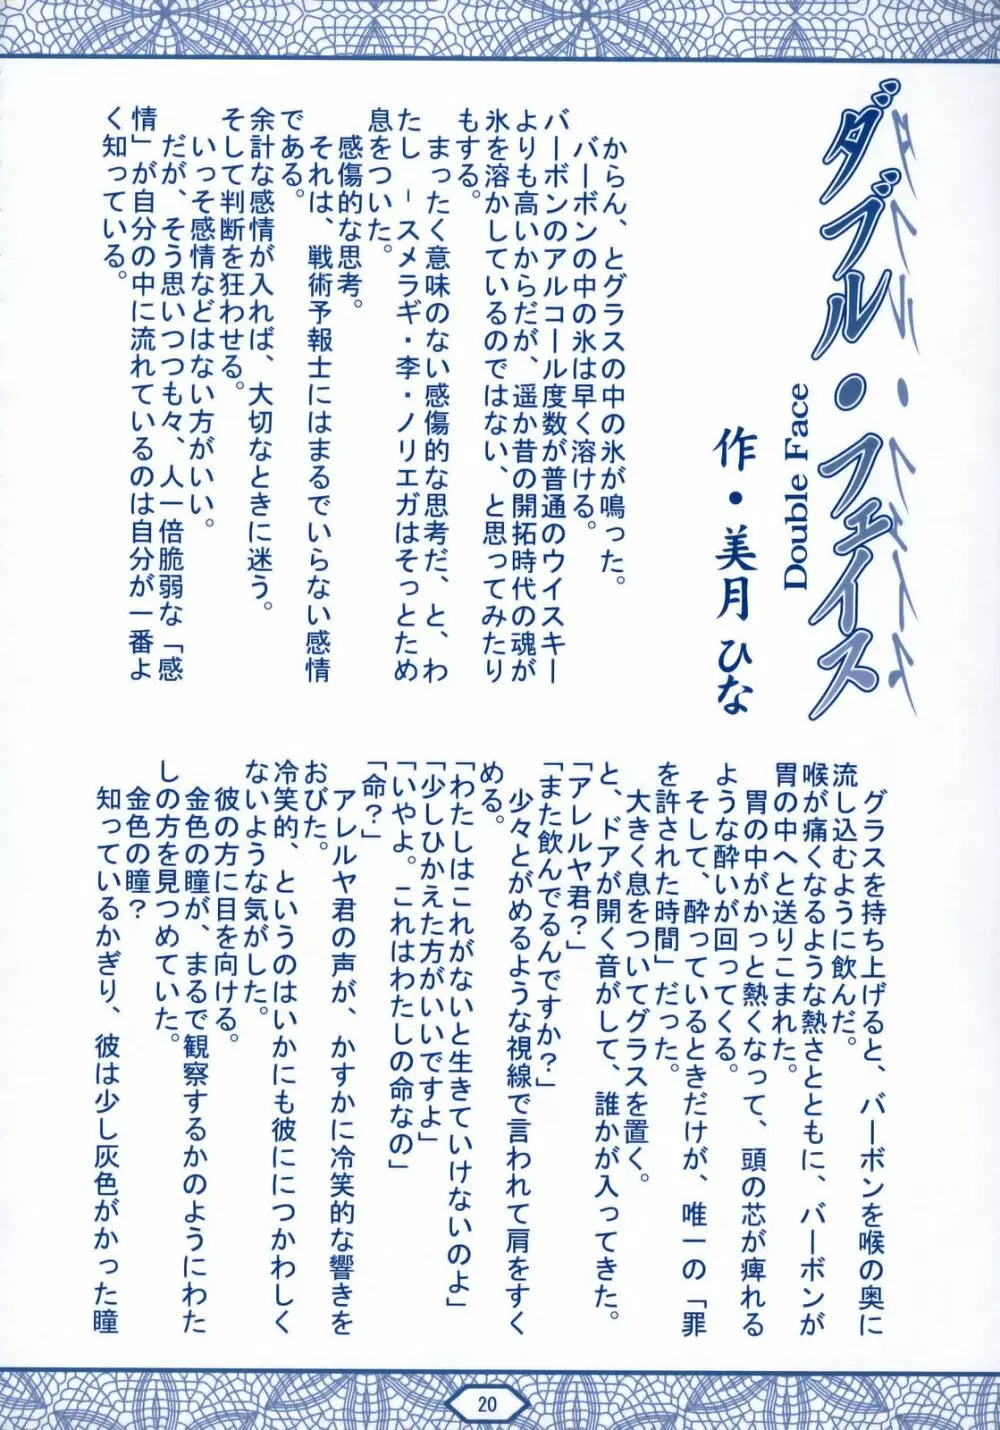 ダブル・フェイス
Double Face
作・美月 ひな
からん、とグラスの中の氷が鳴った。
バーボンの中の氷は早く溶ける。
バーボンのアルコール度数が普通のウイスキー
よりも高いからだが、遥か昔の開拓時代の魂が
氷を溶かしているのではない、と思ってみたり
もする。
まったく意味のない感傷的な思考だ、と、わ
たし － スメラギ・李・ノリエガはそっとため
息をついた。
感傷的な思考。
それは、戦術予報士にはまるでいらない感情
である。
余計な感情が入れば、大切なときに迷う。
そして判断を狂わせる。
いっそ感情などはない方がいい。
だが、そう思いつつも々、人一倍脆弱な「感
情」が自分の中に流れているのは自分が一番よ
く知っている。
グラスを持ち上げると、バーボンを喉の奥に
流し込むように飲んだ。
喉が痛くなるような熱さとともに、バーボンが
胃の中へと送りこまれた。
胃の中がかっと熱くなって、頭の芯が痺れる
ような酔いが回ってくる。
そして、酔っているときだけが、唯一の「罪
を許された時間」だった。
大きく息をついてグラスを置く。
と、ドアが開く音がして、誰かが入ってきた。
「アレルヤ君？」
「また飲んでるんですか？」
少々とがめるような視線で言われて肩をすく
める。
「わたしはこれがないと生きていけないのよ」
「少しひかえた方がいいですよ」
「いやよ。これはわたしの命なの」
「命？」
アレルヤ君の声が、かすかに冷笑的な響きを
おびた。
冷笑的、というのはいかにも彼ににつかわしく
ないような気がした。
彼の方に目を向ける。
金色の瞳が、まるで観察するかのようにわた
しの方を見つめていた。
金色の瞳？
知っているかぎり、彼は少し灰色がかった瞳
20